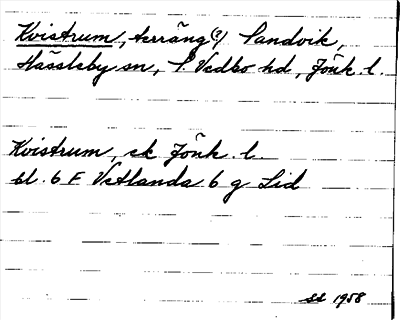 Kvistrum, terräng(?) Sandvik,
Hässleby sn, S. Vedbo hd, Jönk. l.
Kvistrum, ek Jönk. l.
bl. 6 F Vetlanda 6 g Lid
SS 1958